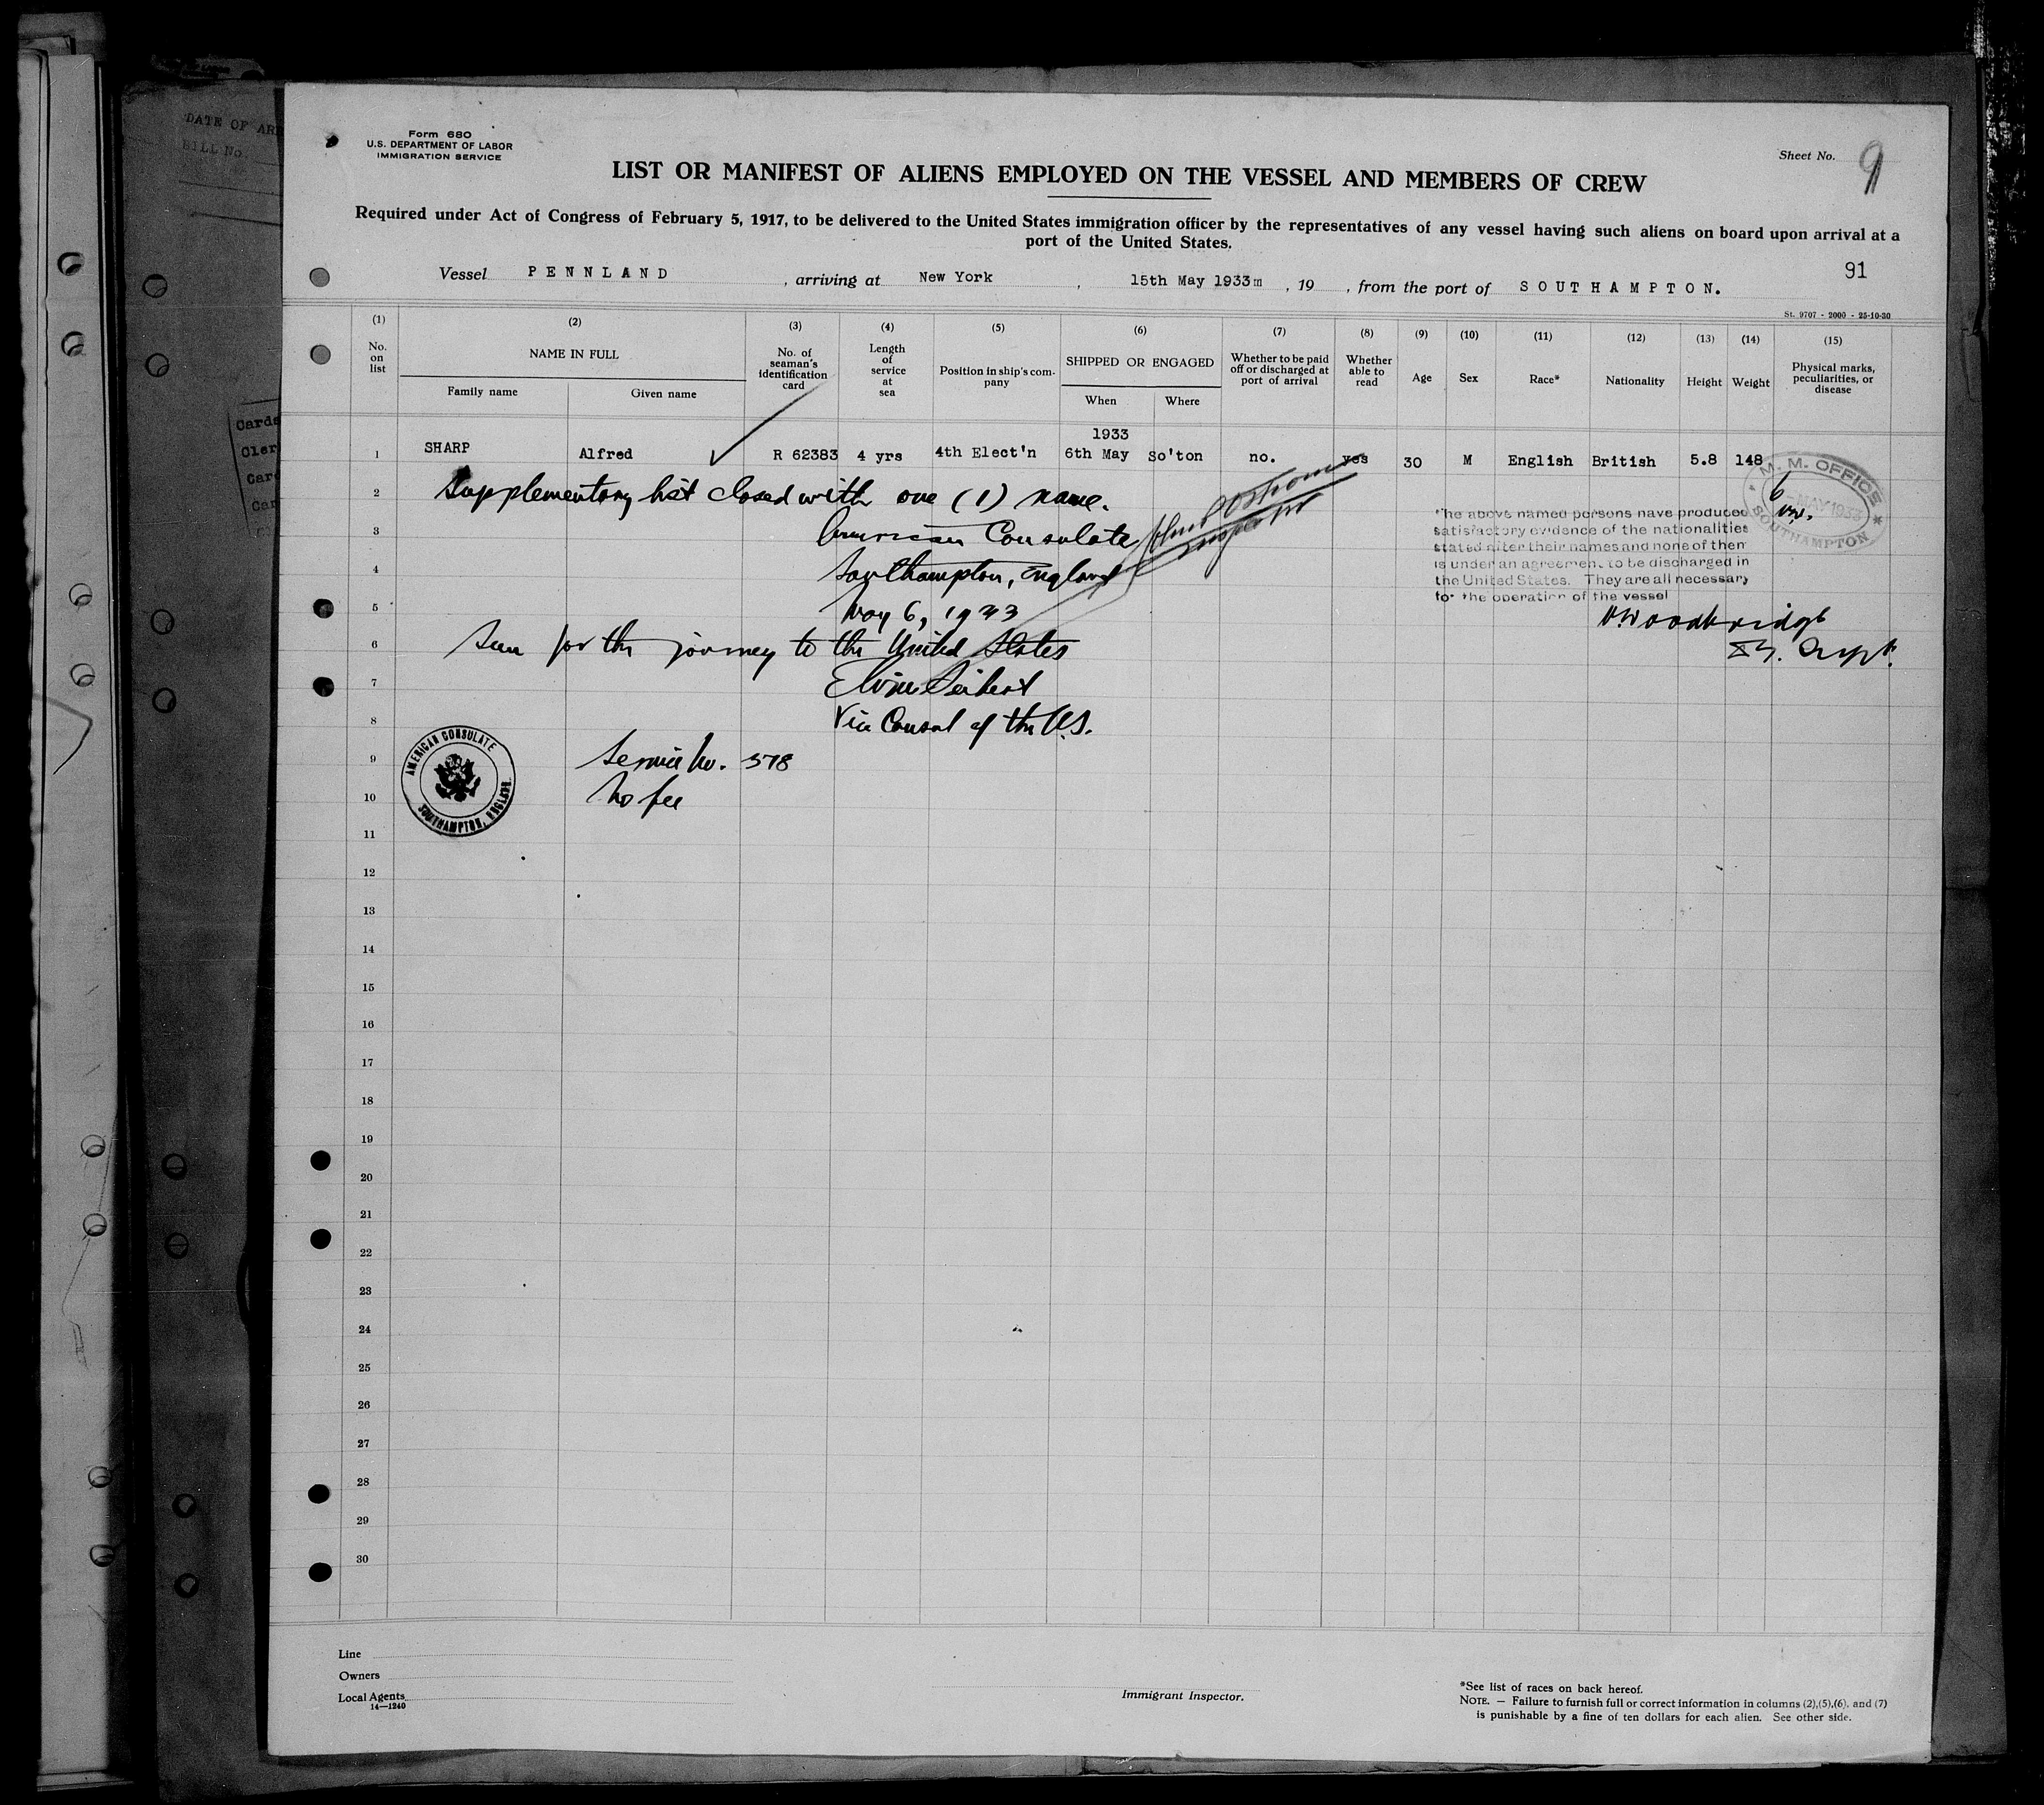 DATE OF
BILL No.
Form 680
U.S. DEPARTMENT OF LABOR
IMMIGRATION SERVICE
Sheet No. 9
LIST OR MANIFEST OF ALIENS EMPLOYED ON THE VESSEL AND MEMBERS OF CREW
Required under Act of Congress of February 5, 1917, to be delivered to the United States immigration officer by the representatives of any vessel having such aliens on board upon arrival at a
port of the United States.
91
Vessel PENNLAND , arriving at New York , 15th May 1933m , 19 , from the port of SOUTHAMPTON.
St. 9707 - 2000 - 25-10-30
(1) (2) (3) (4) (5) (6) (7) (8) (9) (10) (11) (12) (13) (14) (15)
No. on list NAME IN FULL Family name Given name No. of seaman's identification card Length of service at sea Position in ship's company SHIPPED OR ENGAGED When Where Whether to be paid off or discharged at port of arrival Whether able to read Age Sex Race* Nationality Height Weight Physical marks, peculiarities, or disease
1933
1 SHARP Alfred R 62383 4 yrs 4th Elect'n 6th May So'ton no. yes 30 M English British 5.8 148
M. M. OFFICE
6 MAY 1933
SOUTHAMPTON
2 Supplementary list closed with one (1) name.
The above named persons have produced
satisfactory evidence of the nationalities
stated after their names and none of them
is under an agreement to be discharged in
the United States. They are all necessary
for the operation of the vessel
3 American Consulate
Inspector
4 Southampton, England
5 May 6, 1933
H Woodbridge
6 Seen for the journey to the United States
7 Elvin Seibert
8 Vice Consul of the U.S.
AMERICAN CONSULATE
SOUTHAMPTON, ENGLAND.
9 Service No. 578
10 No fee
11
12
13
14
15
16
17
18
19
20
21
22
23
24
25
26
27
28
29
30
Line
Owners
Local Agents
14—1240
Immigrant Inspector.
*See list of races on back hereof.
NOTE. — Failure to furnish full or correct information in columns (2),(5),(6), and (7)
is punishable by a fine of ten dollars for each alien. See other side.